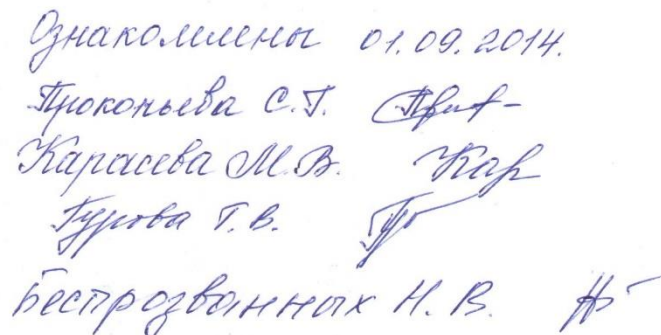 Ознакомлены 01.09.2014.
Прокопьева С.Г.
Карасева М.В. Кар
Гурова Т.В.
Беспрозванных Н.В.